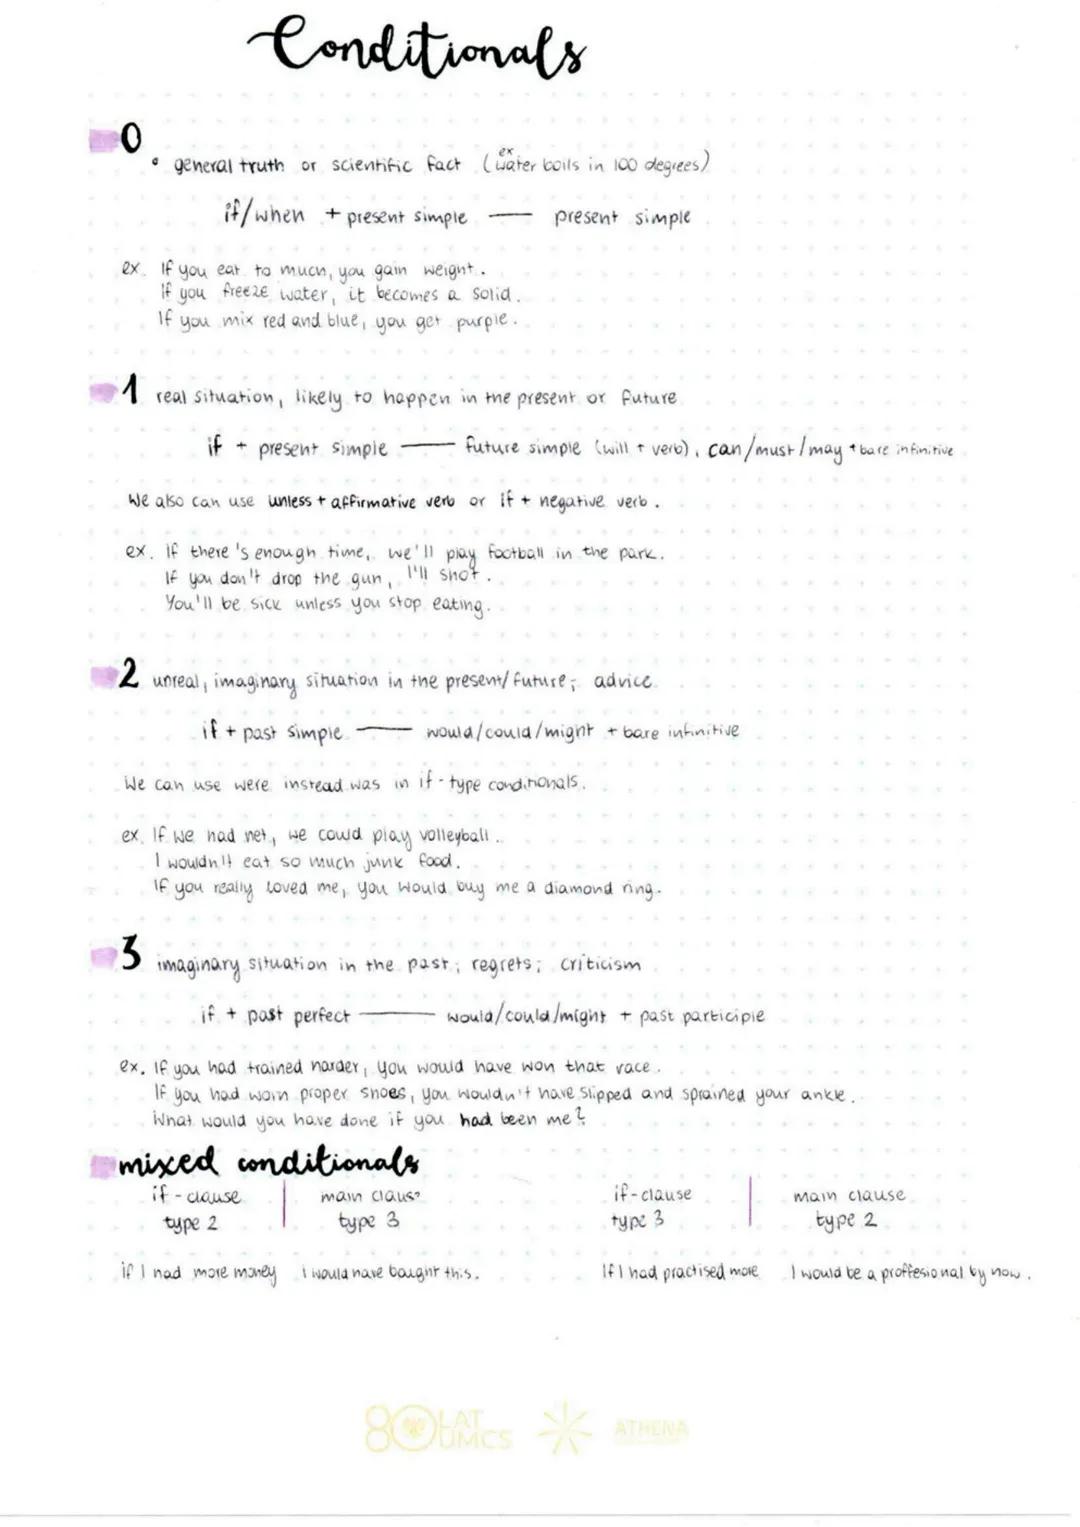 Conditionals
0
• general truth or scientific fact (ex water boils in 100 degrees)
if/when + present simple — present simple
ex. If you eat to much, you gain weight.
If you freeze water, it becomes a solid.
If you mix red and blue, you get purple.
1 real situation, likely to happen in the present or future
if + present simple — future simple (will + verb), can/must/may + bare infinitive
We also can use unless + affirmative verb or if + negative verb.
ex. If there's enough time, we'll play football in the park.
If you don't drop the gun, I'll shot.
You'll be sick unless you stop eating.
2 unreal, imaginary situation in the present/future; advice
if + past simple — would/could/might + bare infinitive
We can use were instead was in if-type conditionals.
ex. If we had net, we could play volleyball.
I wouldn't eat so much junk food.
If you really loved me, you would buy me a diamond ring.
3 imaginary situation in the past; regrets; criticism
if + past perfect — would/could/might + past participle
ex. If you had trained harder, you would have won that race.
If you had worn proper shoes, you wouldn't have slipped and sprained your ankle.
What would you have done if you had been me?
mixed conditionals
if-clause | main clause if-clause | main clause
type 2 type 3 type 3 type 2
if I had more money I would have baught this. If I had practised more I would be a proffesional by now.
80 LAT UMCS ATHENA